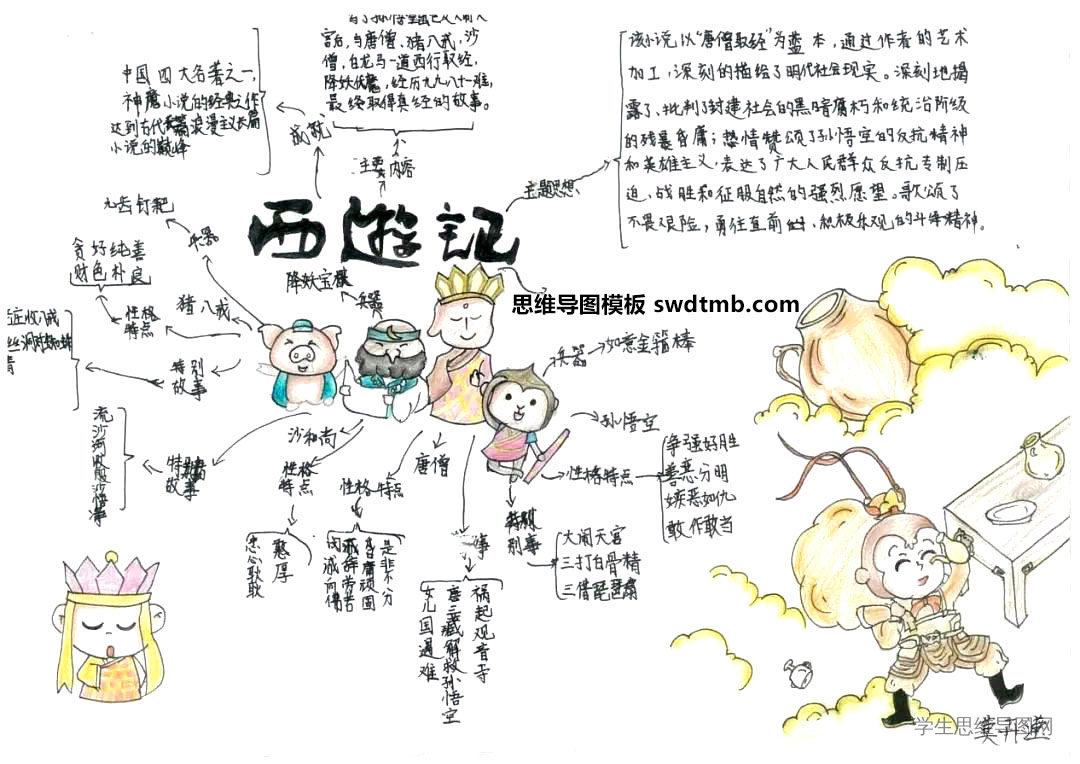 宫后,与唐僧、猪八戒,沙
僧,白龙马一道西行取经,
降妖伏魔,经历九九八十一难,
最终取得真经的故事。
主要内容
中国四大名著之一,
神魔小说的经典之作
达到古代长篇浪漫主义长篇
小说的巅峰
成就
该小说以“唐僧取经”为蓝本,通过作者的艺术
加工,深刻的描绘了明代社会现实。深刻地揭
露了、批判了封建社会的黑暗腐朽和统治阶级
的残暴昏庸;热情赞颂了孙悟空的反抗精神
和英雄主义,表达了广大人民群众反抗专制压
迫、战胜和征服自然的强烈愿望。歌颂了
不畏艰险,勇往直前、积极乐观的斗争精神。
主题思想
西游记
思维导图模板 swdtmb.com
猪八戒
兵器
九齿钉耙
性格
特点
贪好纯善
财色朴良
特别
故事
沙和尚
兵器
降妖宝杖
性格
特点
憨厚
忠心耿耿
特别
故事
流沙河收服沙悟净
唐僧
性格特点
是非不分
昏庸顽固
祸起观音寺
唐三藏解救孙悟空
女儿国遇难
孙悟空
兵器
如意金箍棒
性格特点
争强好胜
善恶分明
嫉恶如仇
敢作敢当
特别
大闹天宫
三打白骨精
三借芭蕉扇
学生思维导图网